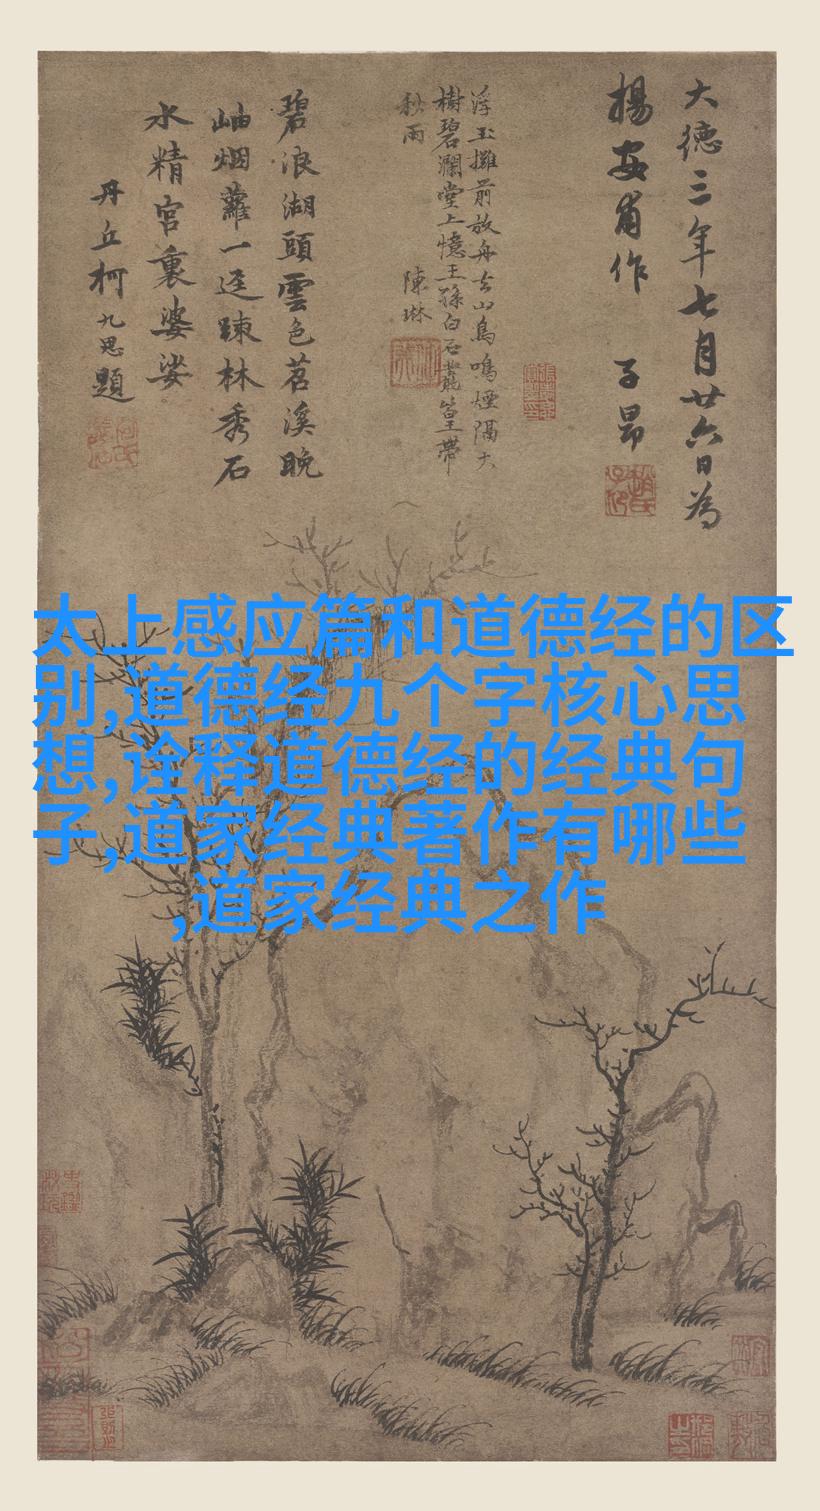 大德三年七月廿六日為
楊安甫作 子昂
浮玉攤前放舟去山鳥鳴煙隔大
樹碧瀾堂上憶王孫白石叢篁帶
秋雨 陳琳
碧浪湖頭雲色苕溪晚
岫烟蘿一逕踈林秀石
水精宮裏婆娑
丹丘柯九思題
太上感应篇和道德经的区
别,道德经九个字核心思
想,诠释道德经的经典句
子,道家经典著作有哪些
,道家经典之作